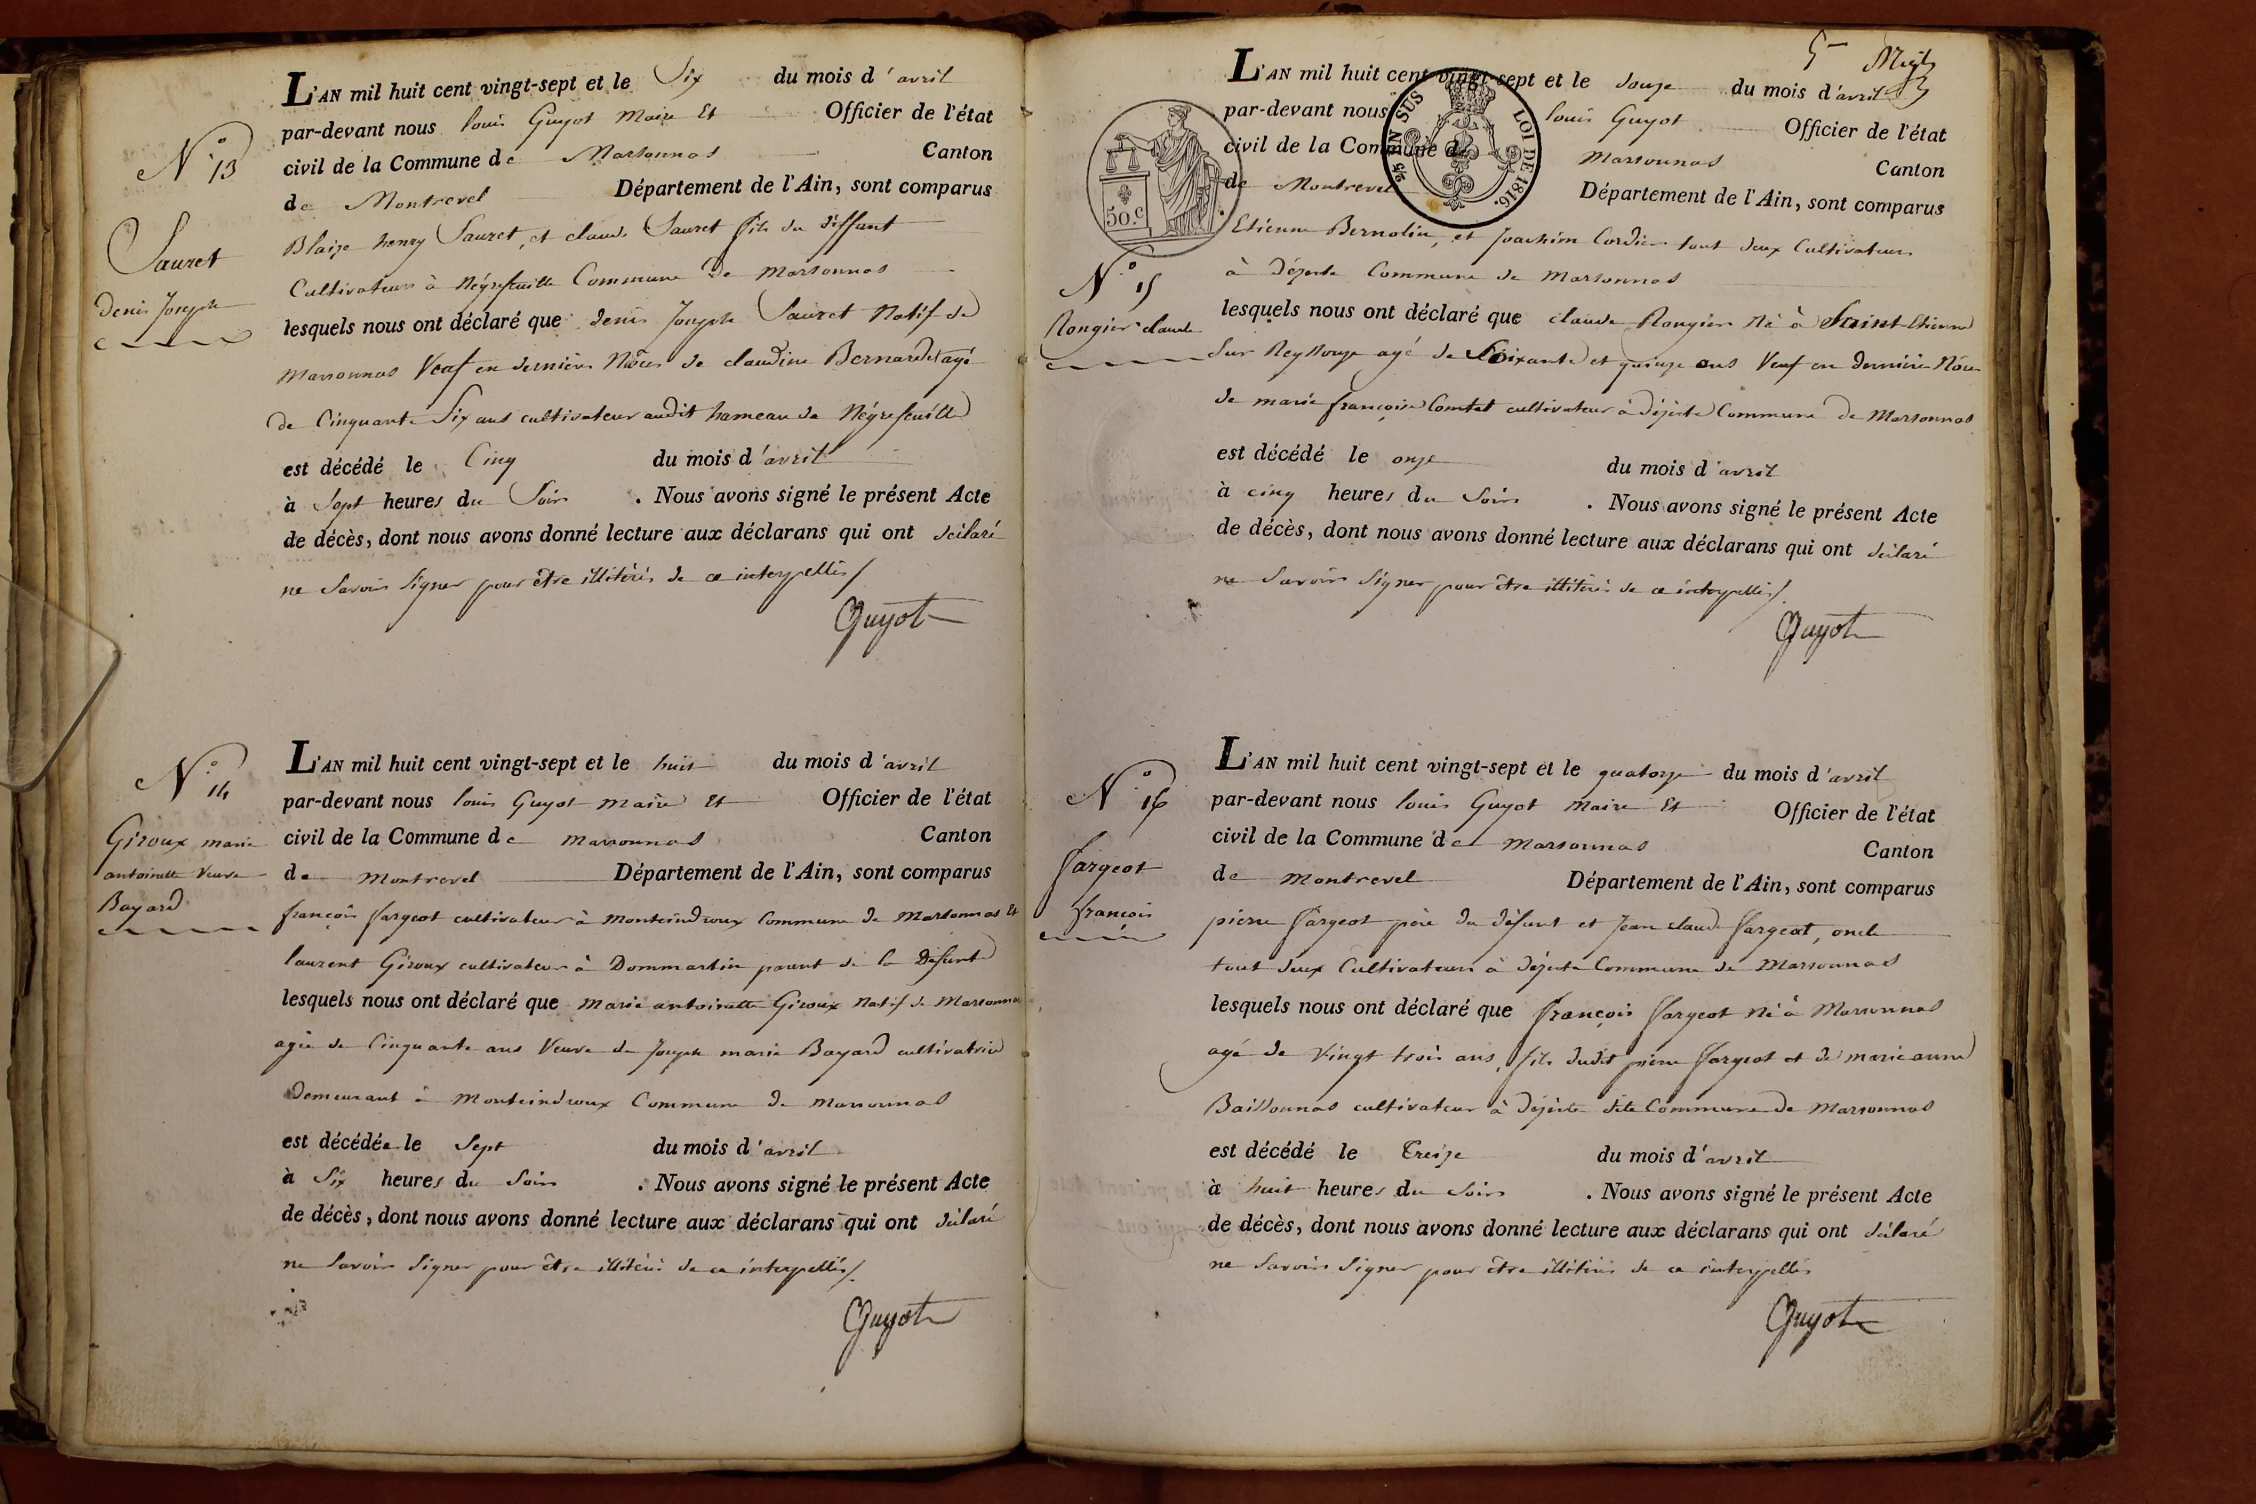 N.o 13
Sauret
denis Joseph
L'AN mil huit cent vingt-sept et le Six du mois d'avril
par-devant nous louis Guyot Maire Et Officier de l'état
civil de la Commune de Marsonnas Canton
de Montrevel Département de l'Ain, sont comparus
Blaize henry Sauret, et claude Sauret fils du diffunt
Cultivateurs à Négrefeuille Commune de Marsonnas
lesquels nous ont déclaré que denis Joseph Sauret Natif de
Marsonnas Veaf en dernière Nôces de claudine Bernardet agé
de Cinquante Six ans cultivateur audit hameau de Négrefeuille
est décédé le Cinq du mois d'avril
à Sept heures du Soir . Nous avons signé le présent Acte
de décès, dont nous avons donné lecture aux déclarans qui ont déclaré
ne Savoir Signer pour être illitérés de ce interpellés/
Guyot
N.o 14
Giroux marie
antoinette Veuve
Bayard
L'AN mil huit cent vingt-sept et le huit du mois d'avril
par-devant nous louis Guyot maire Et Officier de l'état
civil de la Commune de marsonnas Canton
de montrevel Département de l'Ain, sont comparus
françois fargeot cultivateur à monteindroux Commune de Marsonnas Et
laurent Giroux cultivateur à Dommartin parent de la Defunte
lesquels nous ont déclaré que marie antoinette Giroux Natif de Marsonnas
agée de Cinquante ans Veuve de Joseph marie Bayard cultivatrice
Demeurant à monteindroux Commune de marsonnas
est décédée le Sept du mois d'avril
à Six heures du Soir . Nous avons signé le présent Acte
de décès, dont nous avons donné lecture aux déclarans qui ont déclaré
ne Savoir Signer pour être illitérés de ce interpellés/.
Guyot
5
50.c
25 EN SUS
LOI DE 1816.
N.o 15
Rongier claude
L'AN mil huit cent vingt-sept et le douze du mois d'avril
par-devant nous louis Guyot Officier de l'état
civil de la Commune de Marsonnas Canton
de Montrevel Département de l'Ain, sont comparus
Etienne Bernolin, et Joachim Cordier tout deux Cultivateurs
à Déjerte Commune de Marsonnas
lesquels nous ont déclaré que claude Rongier Né à Saint Etienne
Sur Reyssouze agé de Soixante et quinze ans Veuf en dernière Nôce
de marie françoise Comtet cultivateur à Déjerte Commune de Marsonnas
est décédé le onze du mois d'avril
à cinq heures du Soir . Nous avons signé le présent Acte
de décès, dont nous avons donné lecture aux déclarans qui ont déclaré
ne Savoir Signer pour être illitérés de ce interpellés/.
Guyot
N.o 16
fargeot
françois
L'AN mil huit cent vingt-sept et le quatorze du mois d'avril
par-devant nous louis Guyot Maire Et Officier de l'état
civil de la Commune de marsonnas Canton
de montrevel Département de l'Ain, sont comparus
pierre fargeot père du défunt et Jean claude fargeot, oncle
tout deux Cultivateurs à Déjerte Commune de Marsonnas
lesquels nous ont déclaré que françois fargeot Né à Marsonnas
agé de vingt trois ans, fils dudit pierre fargeot et de marie anne
Baissonnas cultivateur à Déjerte dite Commune de Marsonnas
est décédé le Treize du mois d'avril
à huit heures du Soir . Nous avons signé le présent Acte
de décès, dont nous avons donné lecture aux déclarans qui ont déclaré
ne Savoir Signer pour être illitérés de ce interpellés
Guyot